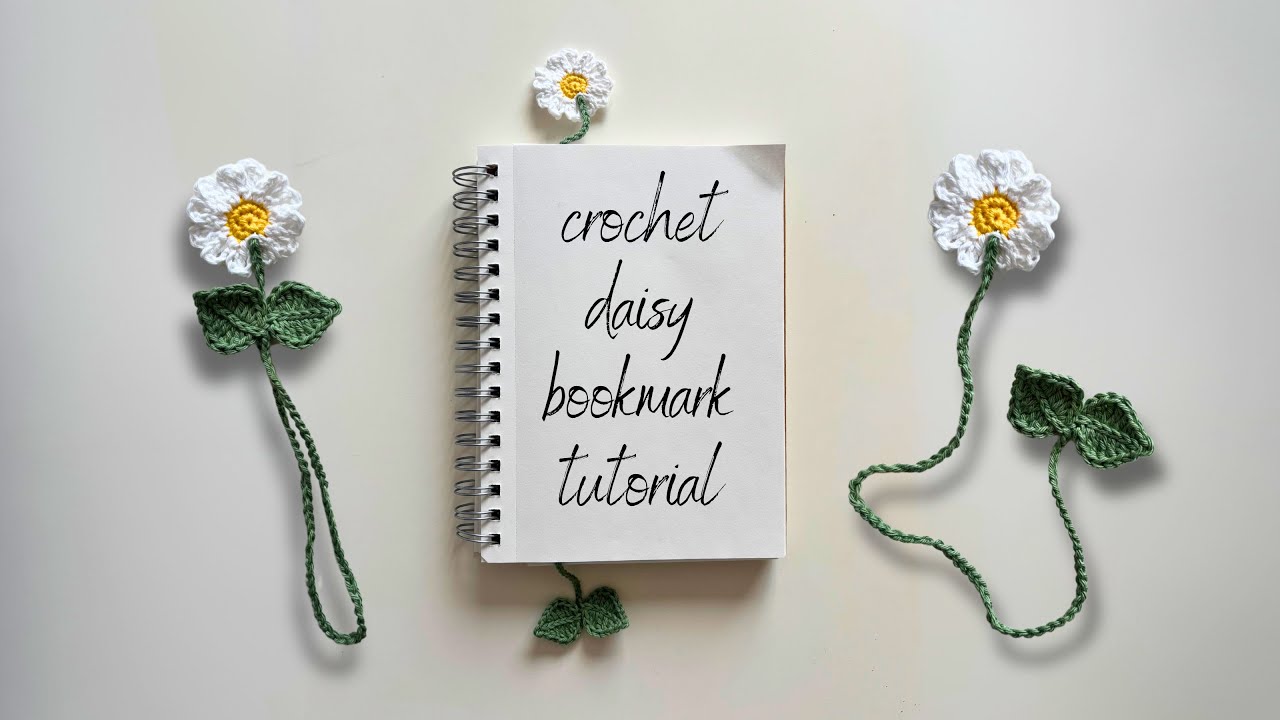 crochet
daisy
bookmark
tutorial